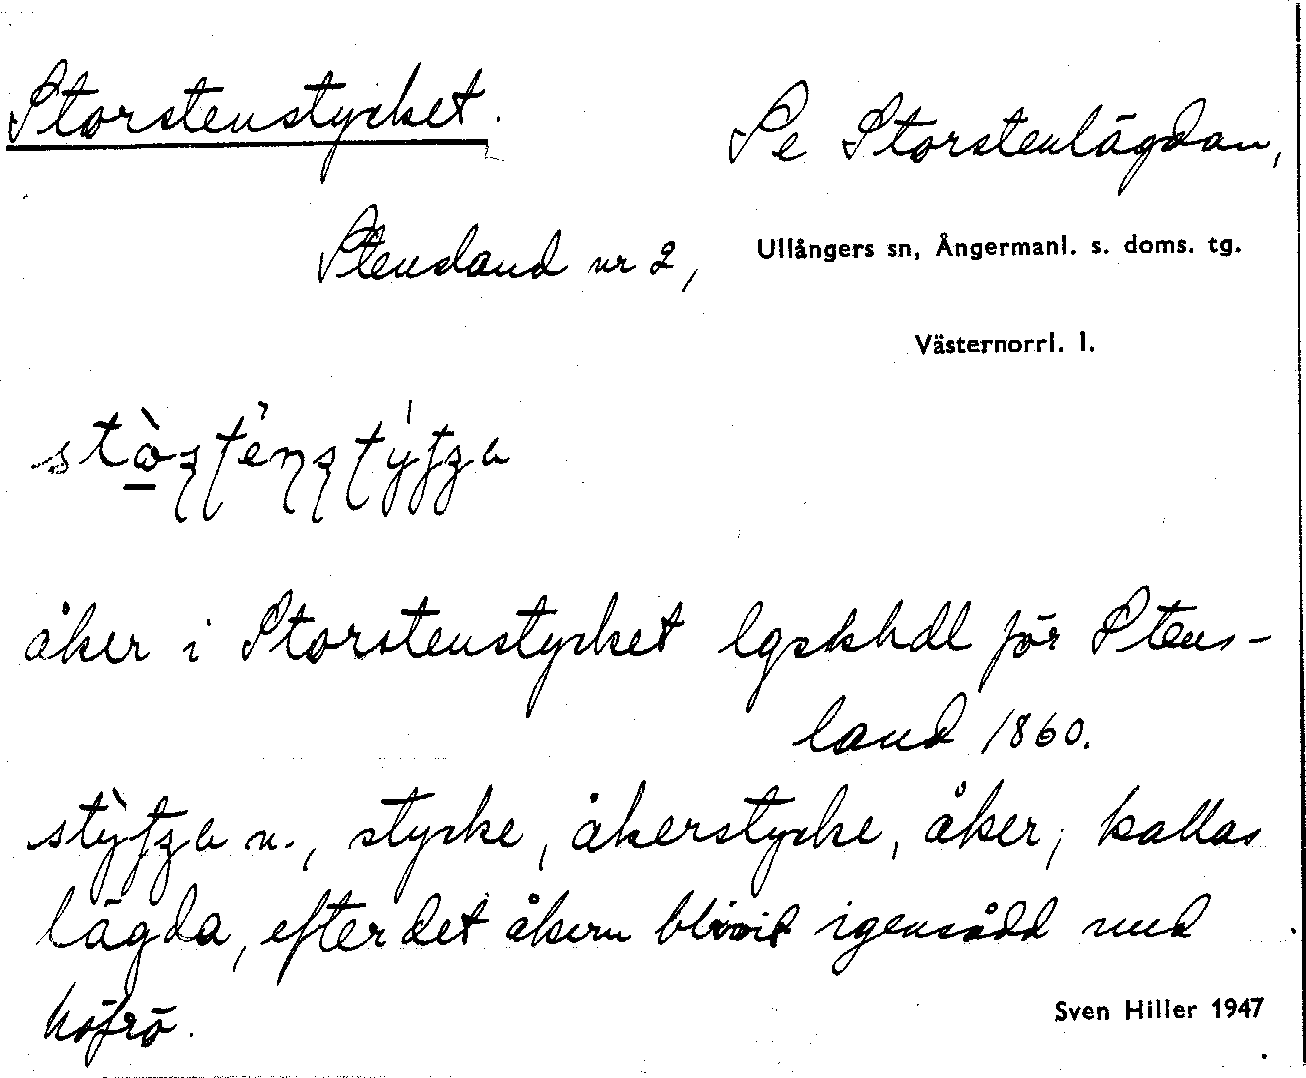 Storstenstycket.
Se Storstenlägdan,
Stensland nr 2,
Ullångers sn, Ångermanl. s. doms. tg.
Västernorrl. l.
åker i Storstenstycket lgskhdl för Stens-
land 1860.
n., stycke, åkerstycke, åker; kallas
lägda, efter det åkern blivit igensådd med
höfrö.
Sven Hiller 1947